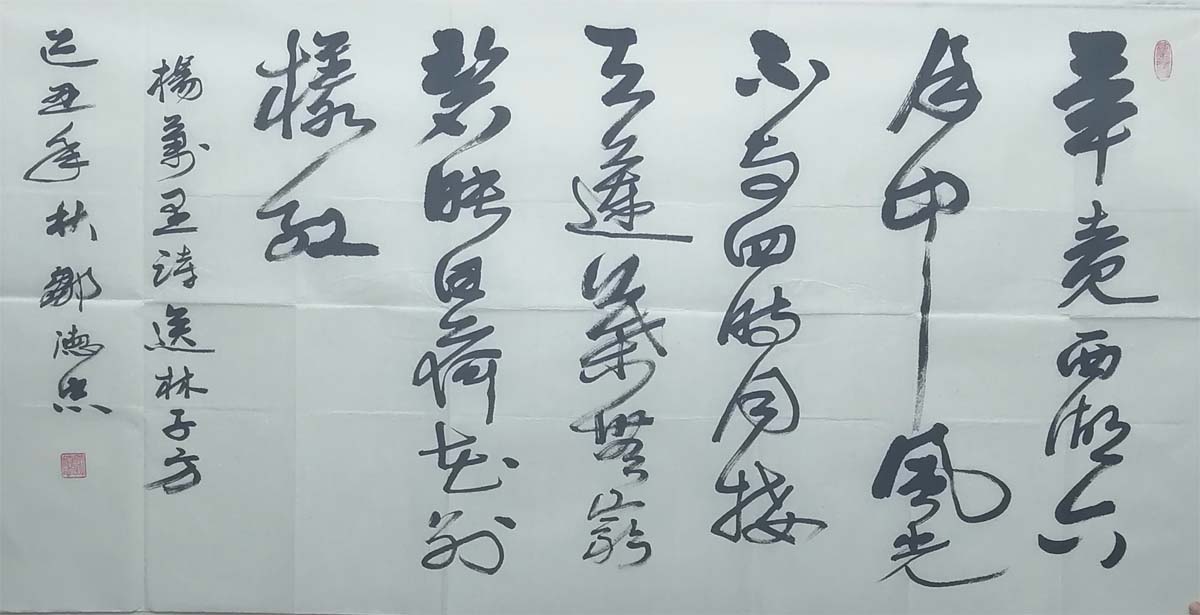 畢竟西湖六
月中風光
不与四時同接
天蓮葉無窮
碧映日荷花別
樣紅
楊萬里詩送林子方
己丑年秋鄒德忠